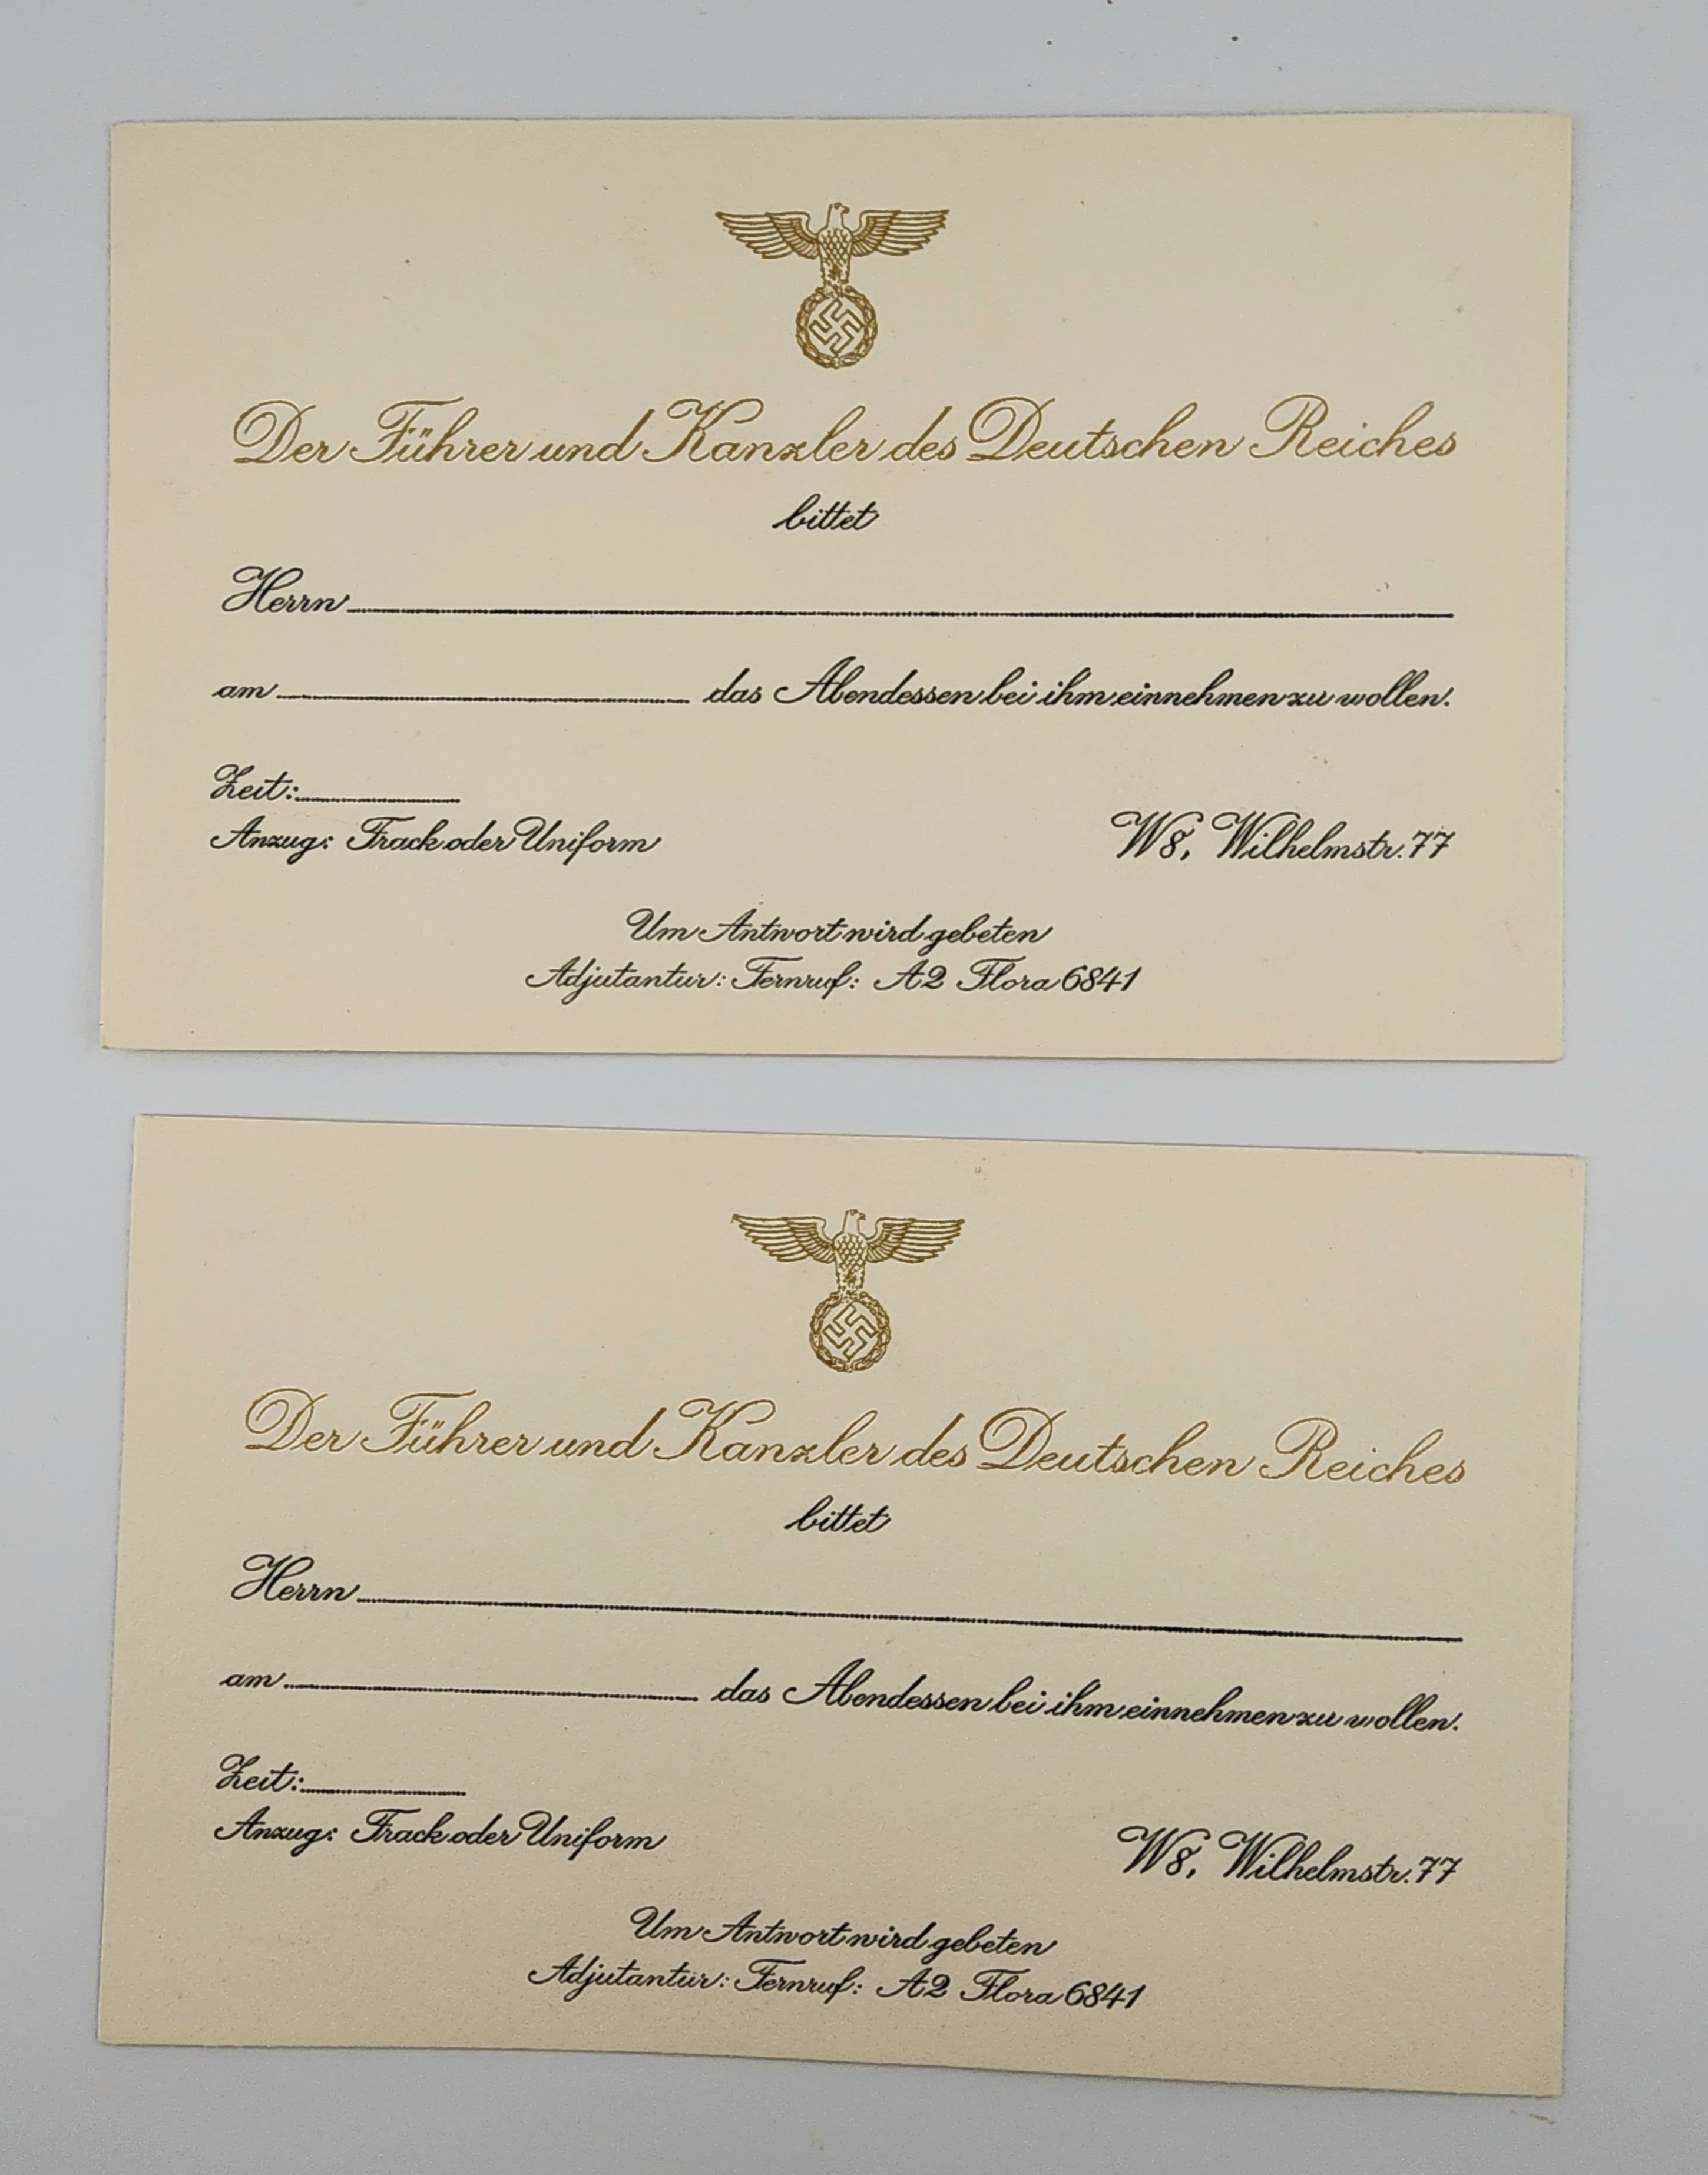 Der Führer und Kanzler des Deutschen Reiches
bittet
Herrn
am das Abendessen bei ihm einnehmen zu wollen.
Zeit:
Anzug: Frack oder Uniform
W8, Wilhelmstr. 77
Um Antwort wird gebeten
Adjutantur: Fernruf: A2 Flora 6841
Der Führer und Kanzler des Deutschen Reiches
bittet
Herrn
am das Abendessen bei ihm einnehmen zu wollen.
Zeit:
Anzug: Frack oder Uniform
W8, Wilhelmstr. 77
Um Antwort wird gebeten
Adjutantur: Fernruf: A2 Flora 6841